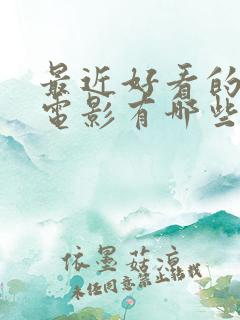 最近好看的
電影有哪些
依墨菇凉
未经同意禁止转载